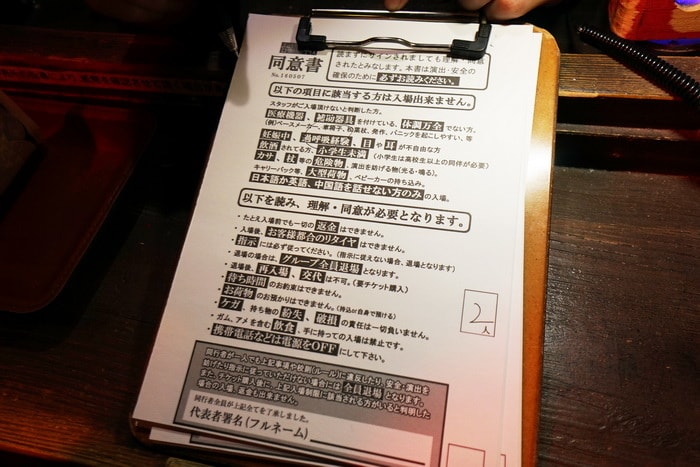 同意書
No.160807
読まずにサインされましても理解・同意
されたとみなします。本書は演出・安全の
確保のために必ずお読みください。
以下の項目に該当する方は入場出来ません。
スタッフがご入場頂けないと判断した方。
医療機器、補助器具を付けている、体調万全でない方。
(例)ペースメーカー、車椅子、松葉杖、発作、パニックを起こしやすい、等
妊娠中、過呼吸経験、目や耳が不自由な方
飲酒されてる方、小学生未満(小学生は高校生以上の同伴が必要)
カサ、杖等の危険物、演出を妨げる物(光る・鳴る)。
キャリーバック等、大型荷物、ベビーカーの持ち込み。
日本語か英語、中国語を話せない方のみの入場。
以下を読み、理解・同意が必要となります。
・たとえ入場前でも一切の返金はできません。
・入場後、お客様都合のリタイヤはできません。
・指示には必ず従ってください。(指示に従えない場合、退場となります)
・退場の場合は、グループ全員退場となります。
・退場後、再入場、交代は不可。(要チケット購入)
・待ち時間のお約束はできません。
・お荷物のお預かりはできません。(持込or自身で預ける)
・ケガ、持ち物の紛失、破損の責任は一切負いません。
・ガム、アメを含む飲食、手に持っての入場は禁止です。
・携帯電話などは電源をOFFにして下さい。
2人
同行者が一人でも上記事項や校則(ルール)に違反したり、安全、演出を
妨げたり指示に従っていただけない場合には全員退場となります。
また、チケット購入後に、上記入場制限に該当される方がいると判明した
場合の入場、返金も出来ません。
同行者全員が上記全てを了承しました。
代表者署名(フルネーム)